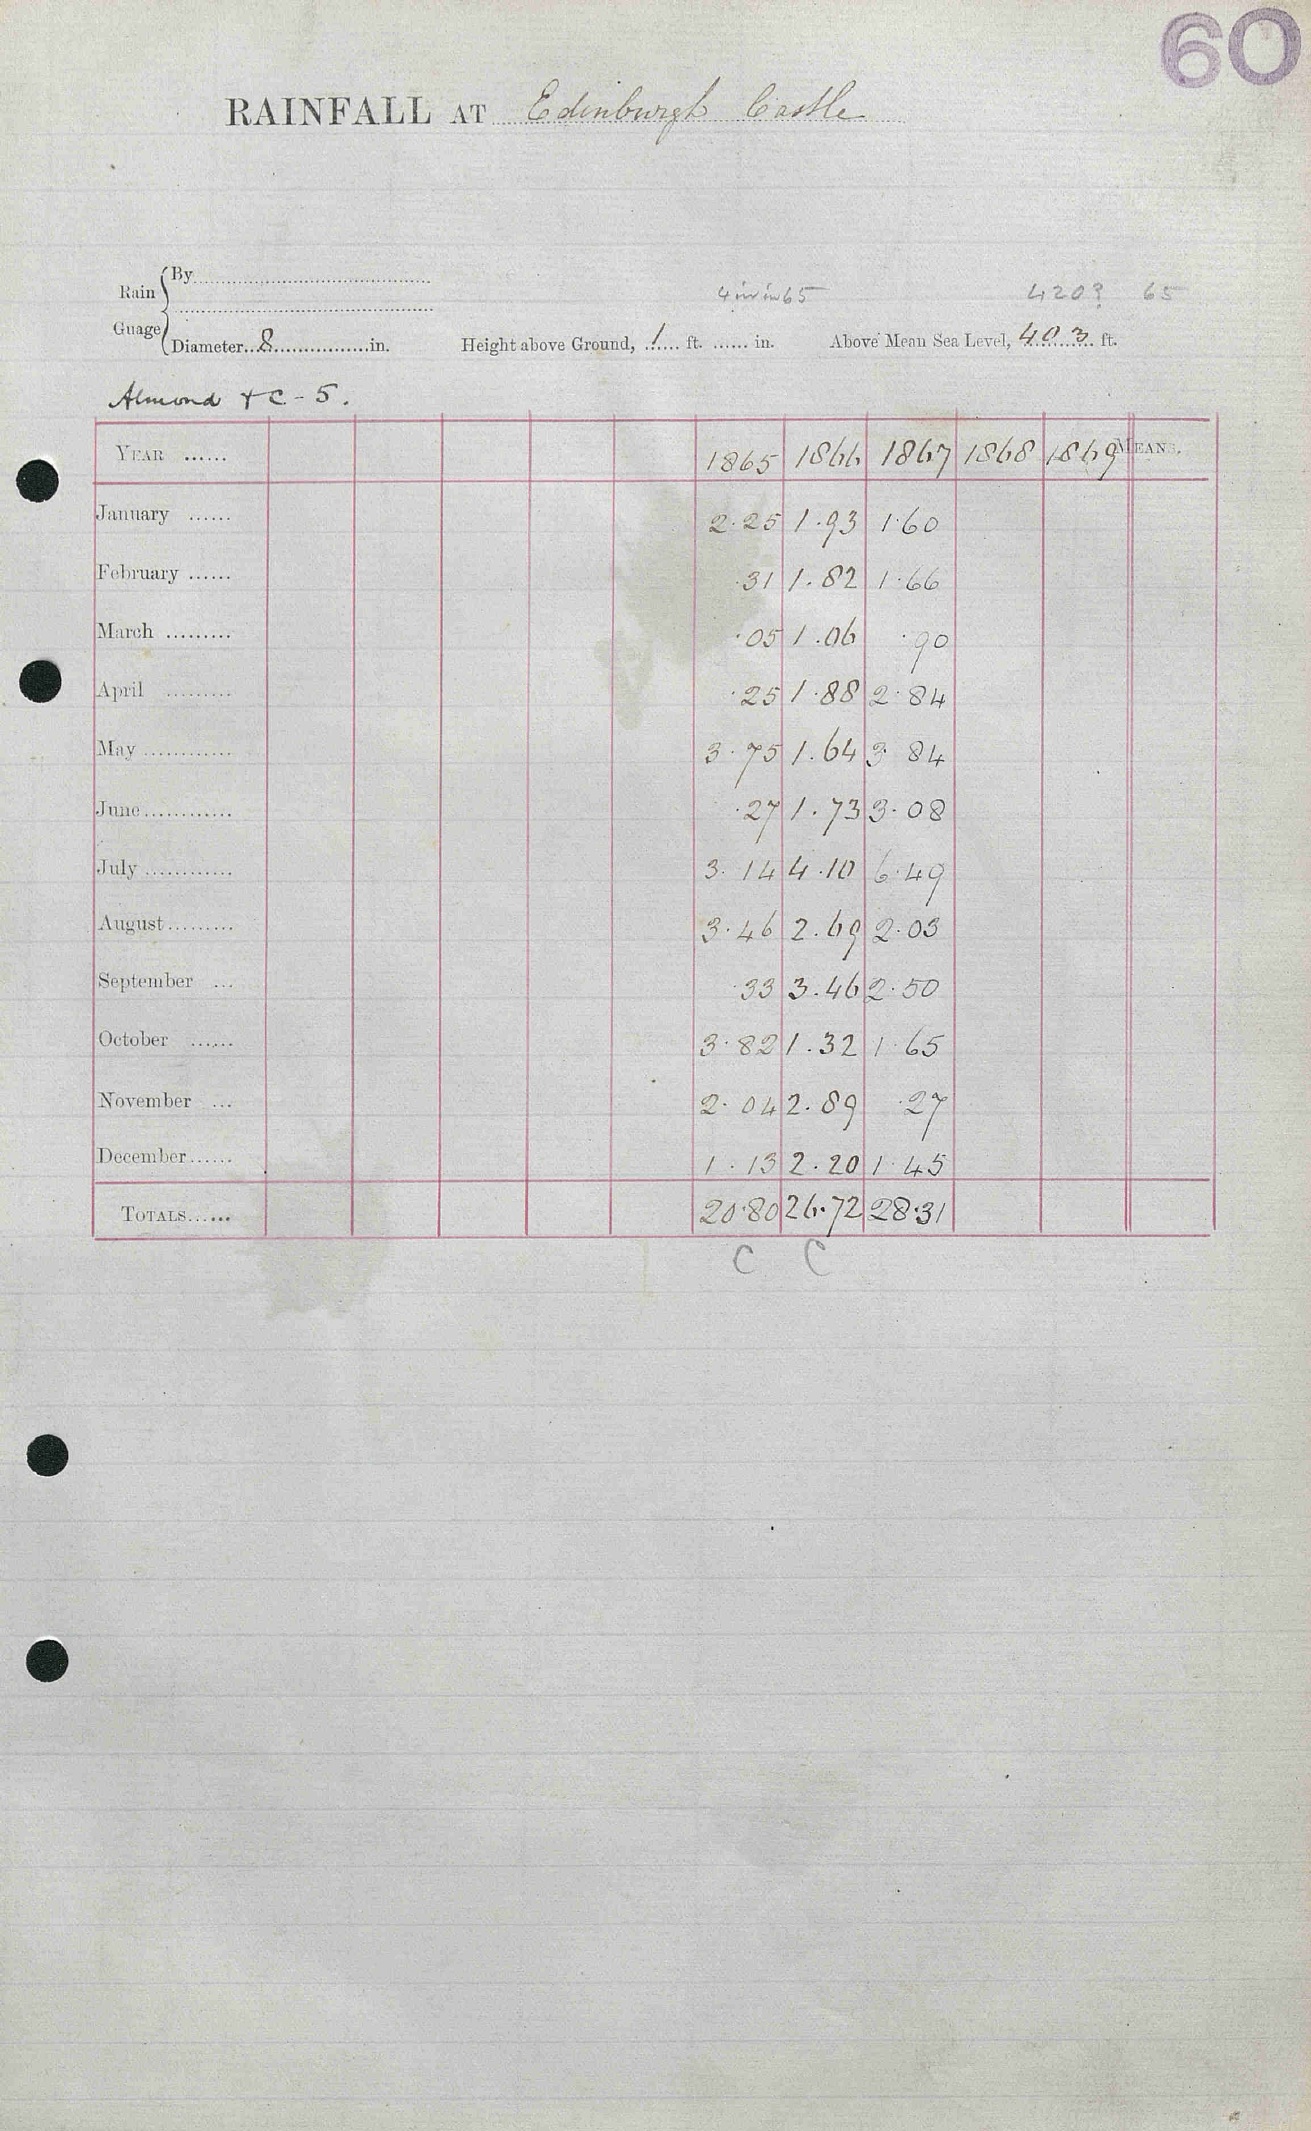 60
RAINFALL AT Edinburgh Castle
Rain Guage
By
4 in in 65
420? 65
Diameter 8 in. Height above Ground, 1 ft. in. Above Mean Sea Level, 403 ft.
Almond & C - 5.
YEAR 1865 1866 1867 1868 1869 MEANS.
January 2.25 1.93 1.60
February .31 1.82 1.66
March .05 1.06 .90
April .25 1.88 2.84
May 3.75 1.64 3 84
June .27 1.73 3.08
July 3.14 4.10 6.49
August 3.46 2.69 2.03
September .33 3.46 2.50
October 3.82 1.32 1.65
November 2.04 2.89 .27
December 1.13 2.20 1.45
TOTALS 20.80 26.72 28.31
C C